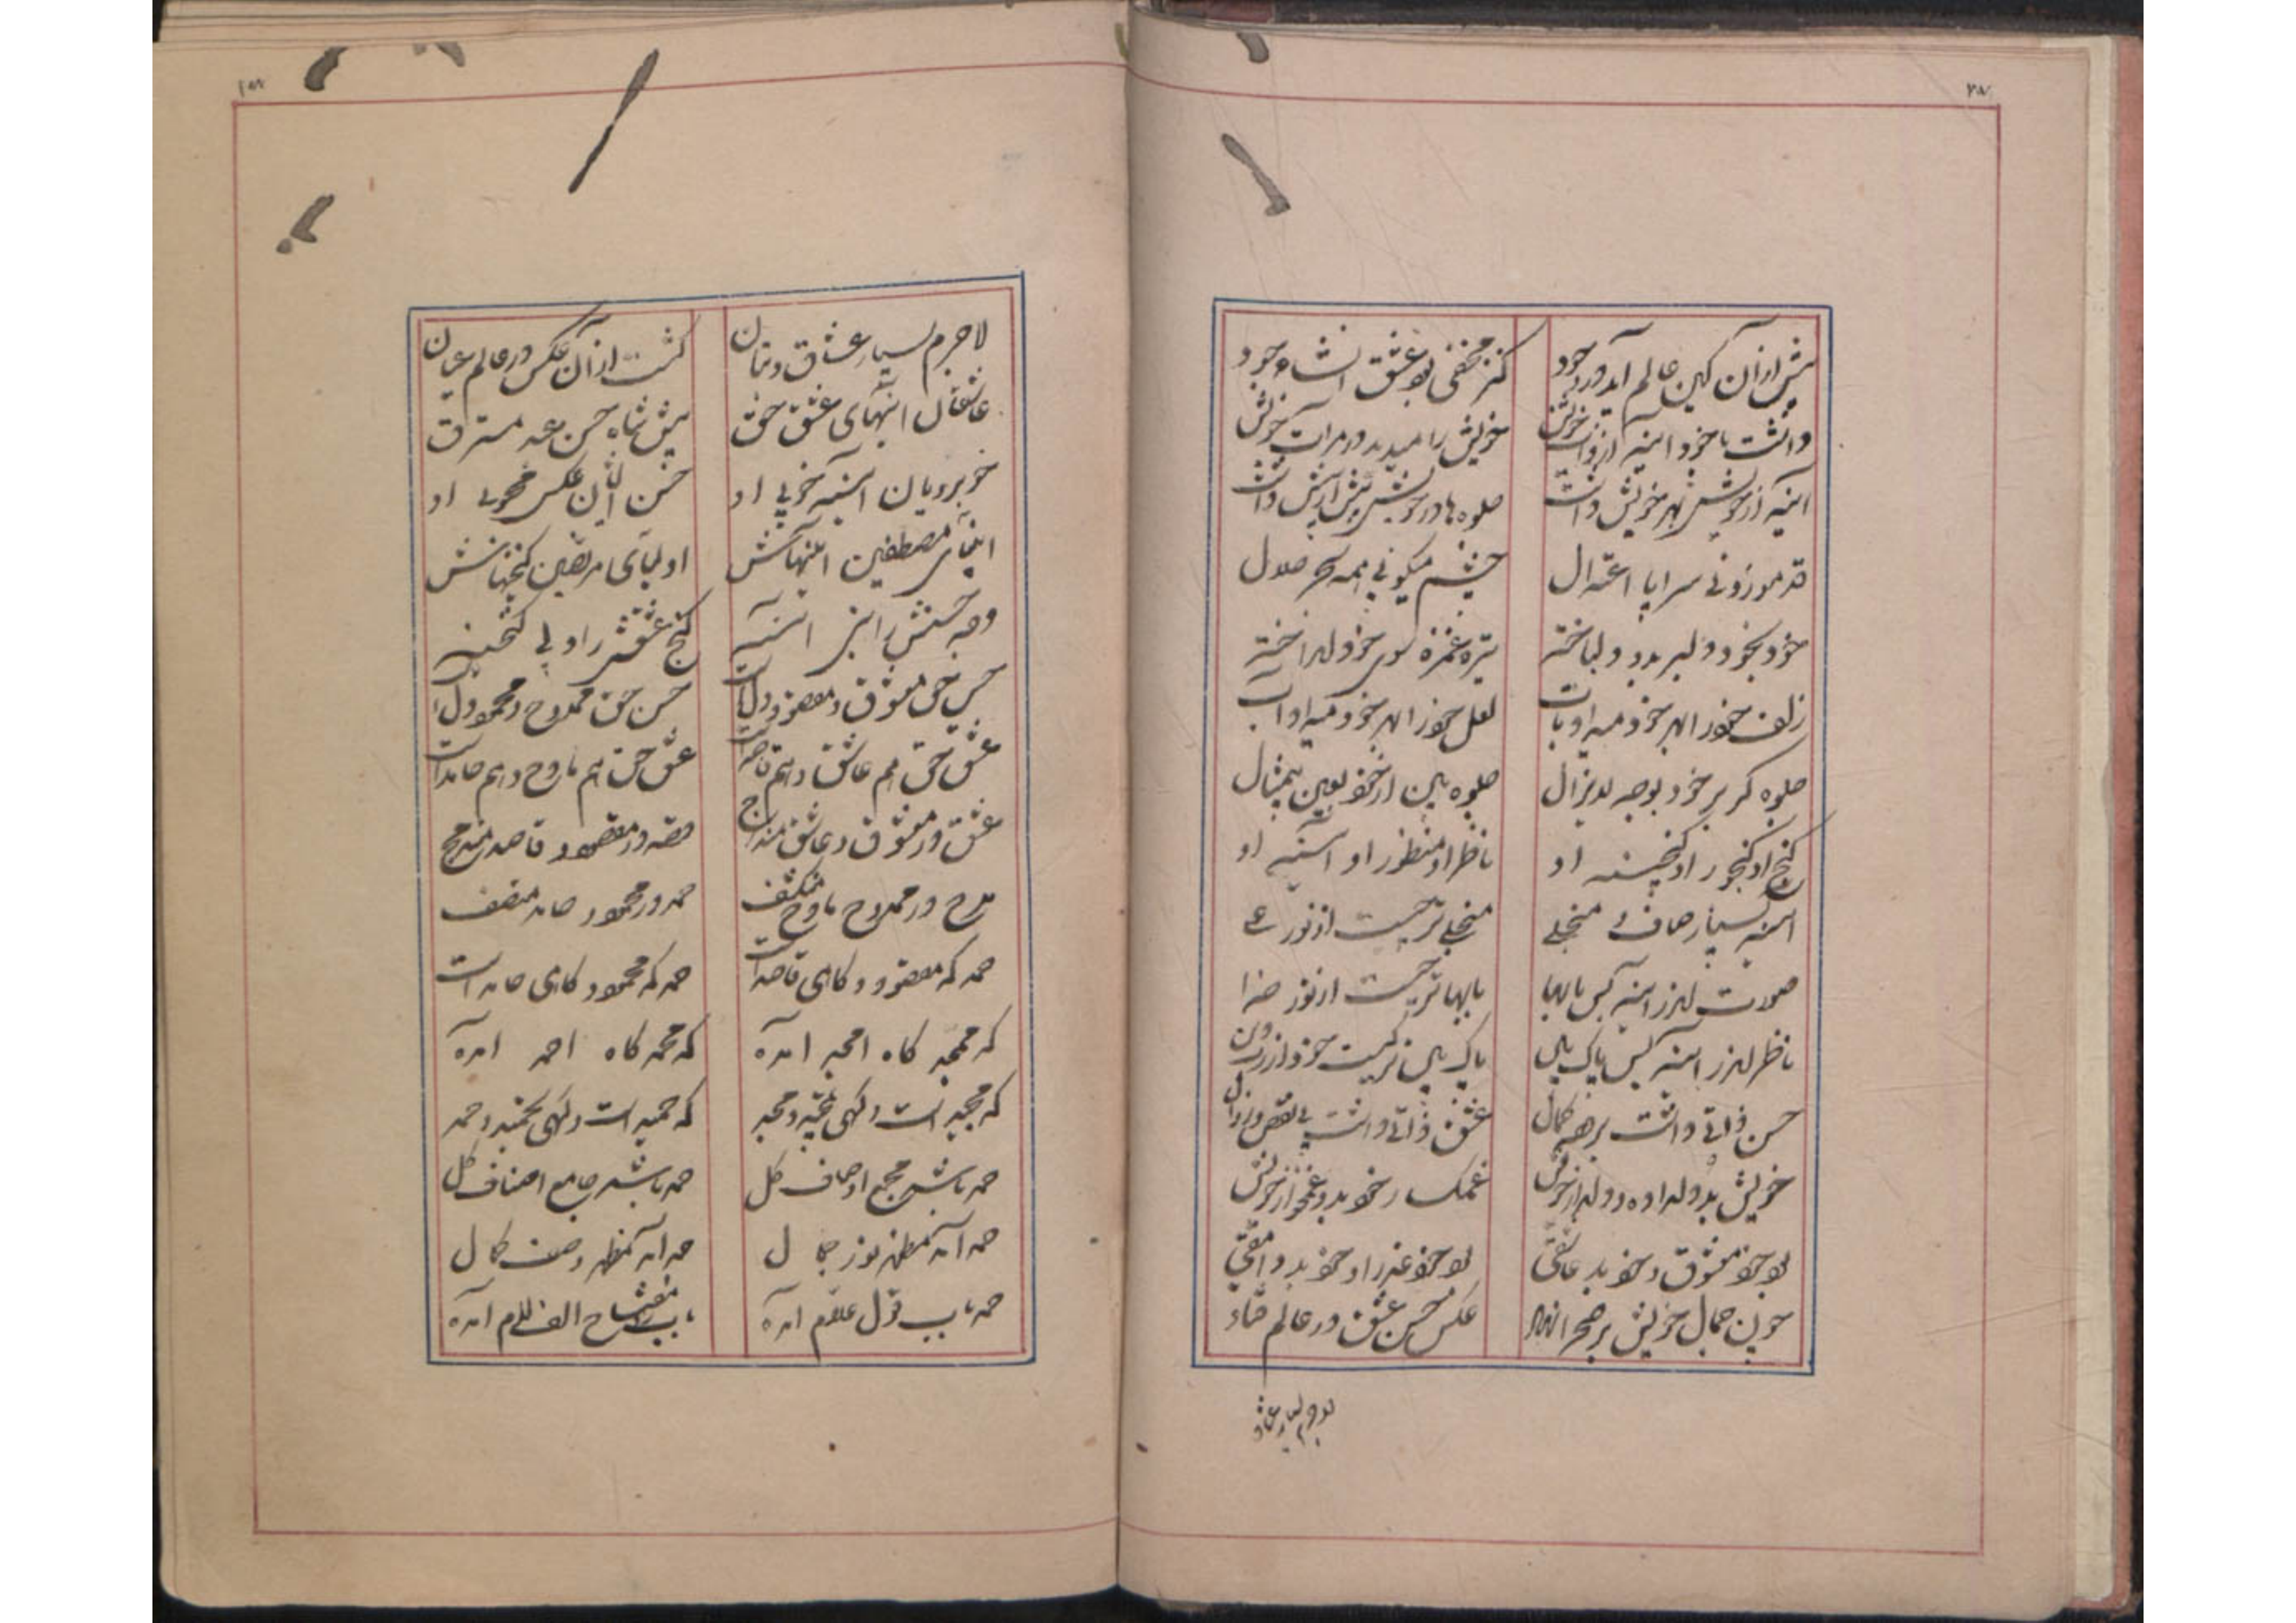 پیش از آن کین عالم آید در وجود کنز مخفی بود عشق انشاء جود
داشت با خود آینه از ذات خویش خویش را میدید در مرآت خویش
آینه از خویش بهر خویش داشت جلوه‌ها در خویش بیش از پیش داشت
قد موزونی سراپا اعتدال چشم میگونی همه سحر حلال
خود بخود دلبر بدو دلباخته تیر غمزه سوی خود انداخته
زلف خود را بهر خود میداد تاب لعل خود را بهر خود میداد آب
جلوه گر بر خود بوجه لایزال جلوه بین از خود بعین بیمثال
گنج او گنجور او گنجینه او ناظر او منظور او آینه او
آینه بسیار صاف و منجلی منجلی‌تر چیست از نور علی
صورت اندر آینه بس با بها با بهاتر چیست از نور خدا
ناظر اندر آینه بس پاک بین پاک بین‌تر کیست خود از رب دین
حسن ذاتی داشت بر وجه کمال عشق ذاتی داشت بی نقص و زوال
خویش بد دلداده و دلدار خویش غمگسار خود بد و غمخوار خویش
بود خود معشوق و خود بد عاشقی بود خود عذرا و خود بد وامقی
چون جمال خویش بر صحرا نهاد عکس حسن عشق در عالم فتاد
لاجرم بسیار عشاق
۱۵۸
لاجرم بسیار عشاق و بتان گشت از آن عکس در عالم عیان
عاشقان آینهای عشق حق پیش شاه حسن عبد مسترق
خوبرویان آینه خوبی او حسن ایشان عکس محبوبی او
انبیای مصطفین آینهاش اولیای مرتضین گنجینهاش
وجه حسنش را نبی آینه گنج عشقش را ولی گنجینه
حسن حق معشوق و مقصود دل است حسن حق ممدوح و محمود دل است
عشق حق هم عاشق و هم قاصد است عشق حق هم مادح و هم حامد است
عشق در معشوق و عاشق مندرج قصد در مقصود و قاصد مندمج
مدح در ممدوح مادح منکشف حمد در محمود حامد متصف
حمد که مقصود و گاهی قاصد است حمد که محمود و گاهی حامد است
که ممجد گاه امجد آمده که محمد گاه احمد آمده
که مجید است و گهی تمجید و مجد که حمید است و گهی تحمید و حمد
حمد باشد مجمع اوصاف کل حمد باشد جامع اصناف کل
حمد آمد مظهر نور جمال حمد آمد مظهر وصف کمال
حمد باب قول علام آمده باب را مفتاح الف لام آمده